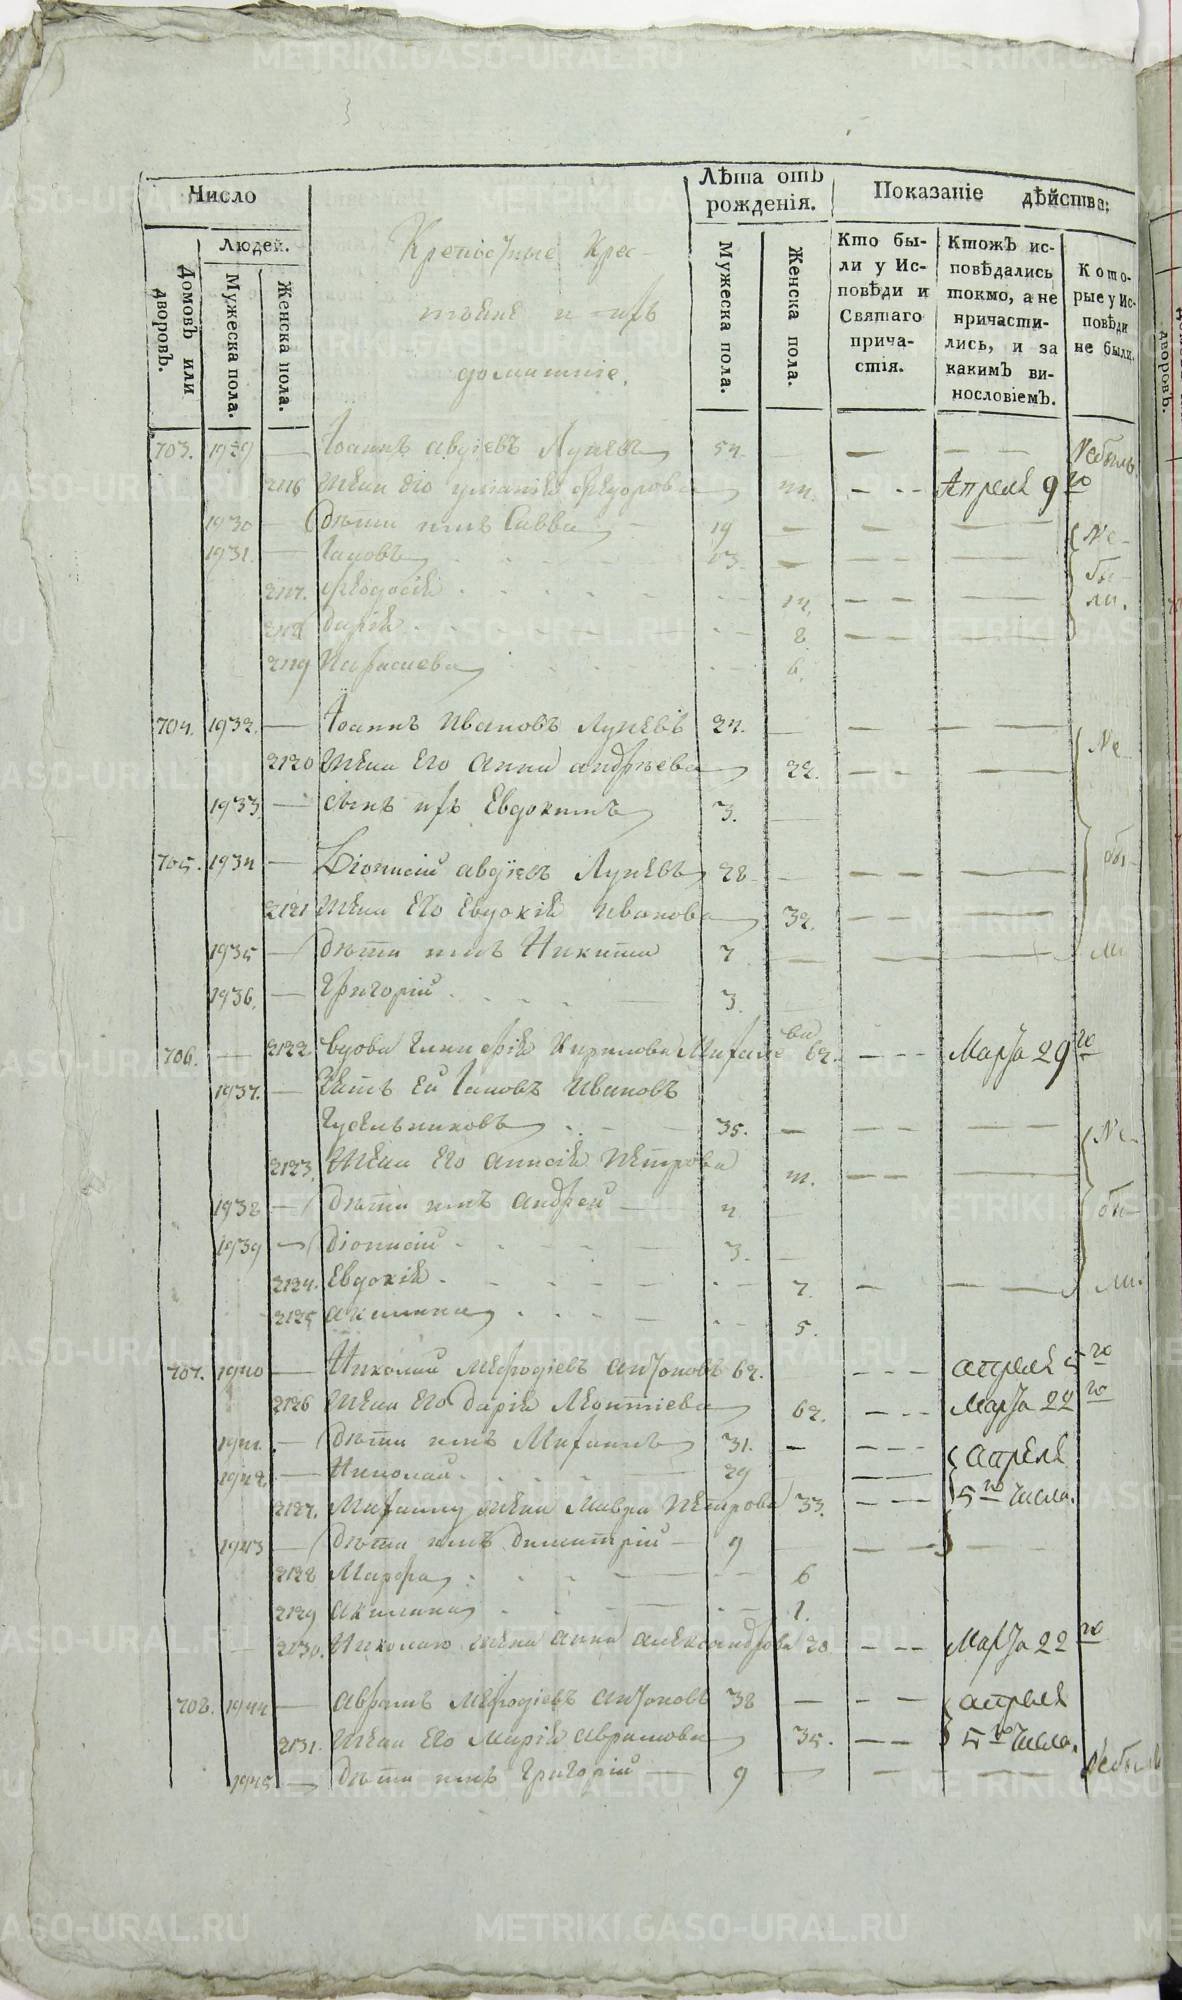 Число
Лѣта отъ рожденія.
Показаніе дѣйства:
Людей.
Домовъ или дворовъ.
Мужеска пола.
Женска пола.
Крепостные Крес-
тьяне и ихъ
домашніе.
Мужеска пола.
Женска пола.
Кто бы-
ли у Ис-
повѣди и
Святаго
прича-
стія.
Ктожъ ис-
повѣдались
токмо, а не
причасти-
лись, и за
какимъ ви-
нословіемъ.
Кото-
рые у Ис-
повѣди
не были.
703. 1929 Іоаннъ Авдіевъ Луневъ 54 Небылъ
2116 Жена Его Федорова 44. Апреля 9го
1930 Дѣти ихъ Савва 19 Не-
1931. Іаковъ 13. бы-
2117. Феодосія 14. ли.
2118 Дарія 8
2119 Параскева 6.
704. 1932. Іоаннъ Ивановъ Луневъ 24. Не
2120 Жена Его Анна Андреева 22.
1933 сынъ ихъ Евдокимъ 3.
705. 1934 Діонисій Авдіевъ Луневъ 28 бы-
2121 Жена Его Евдокія Иванова 32.
1935 Дѣти ихъ Никита 7 ли
1936. Григорій 3.
706. 2122 Вдова Гликерія Кирилова 62. Марта 29го
1937. Зять Ея Іаковъ Ивановъ
Гусельниковъ 35. Не-
2123. Жена Его Анисія Петрова
1938 Дѣти ихъ Андрей 4 бы-
1939 Діонисій 3.
2124. Евдокія 7. ли.
2125 Акилина 5.
707. 1940 Николай Мефодіевъ Антоновъ 62. апреля 5го
2126 Жена Его Дарія Леонтіева 62. Марта 22го
1941. Дѣти ихъ Михаилъ 31. апреля
1942 Николай 29
2127. Михаилу жена Мавра Петрова 33. 5го числа.
1943 Дѣти ихъ Димитрій 9
2128 Марфа 6
2129 Акилина 1.
2130. Николаю жена Анна Александрова 28 Марта 22го
708. 1944 Аврамъ Мефодіевъ Антоновъ 38 апреля
2131. Жена Его Марія Аврамова 35. 5го числа.
1945 Дѣти ихъ Григорій 9 Небыли
дворовъ.
METRIKI.GASO-URAL.RU